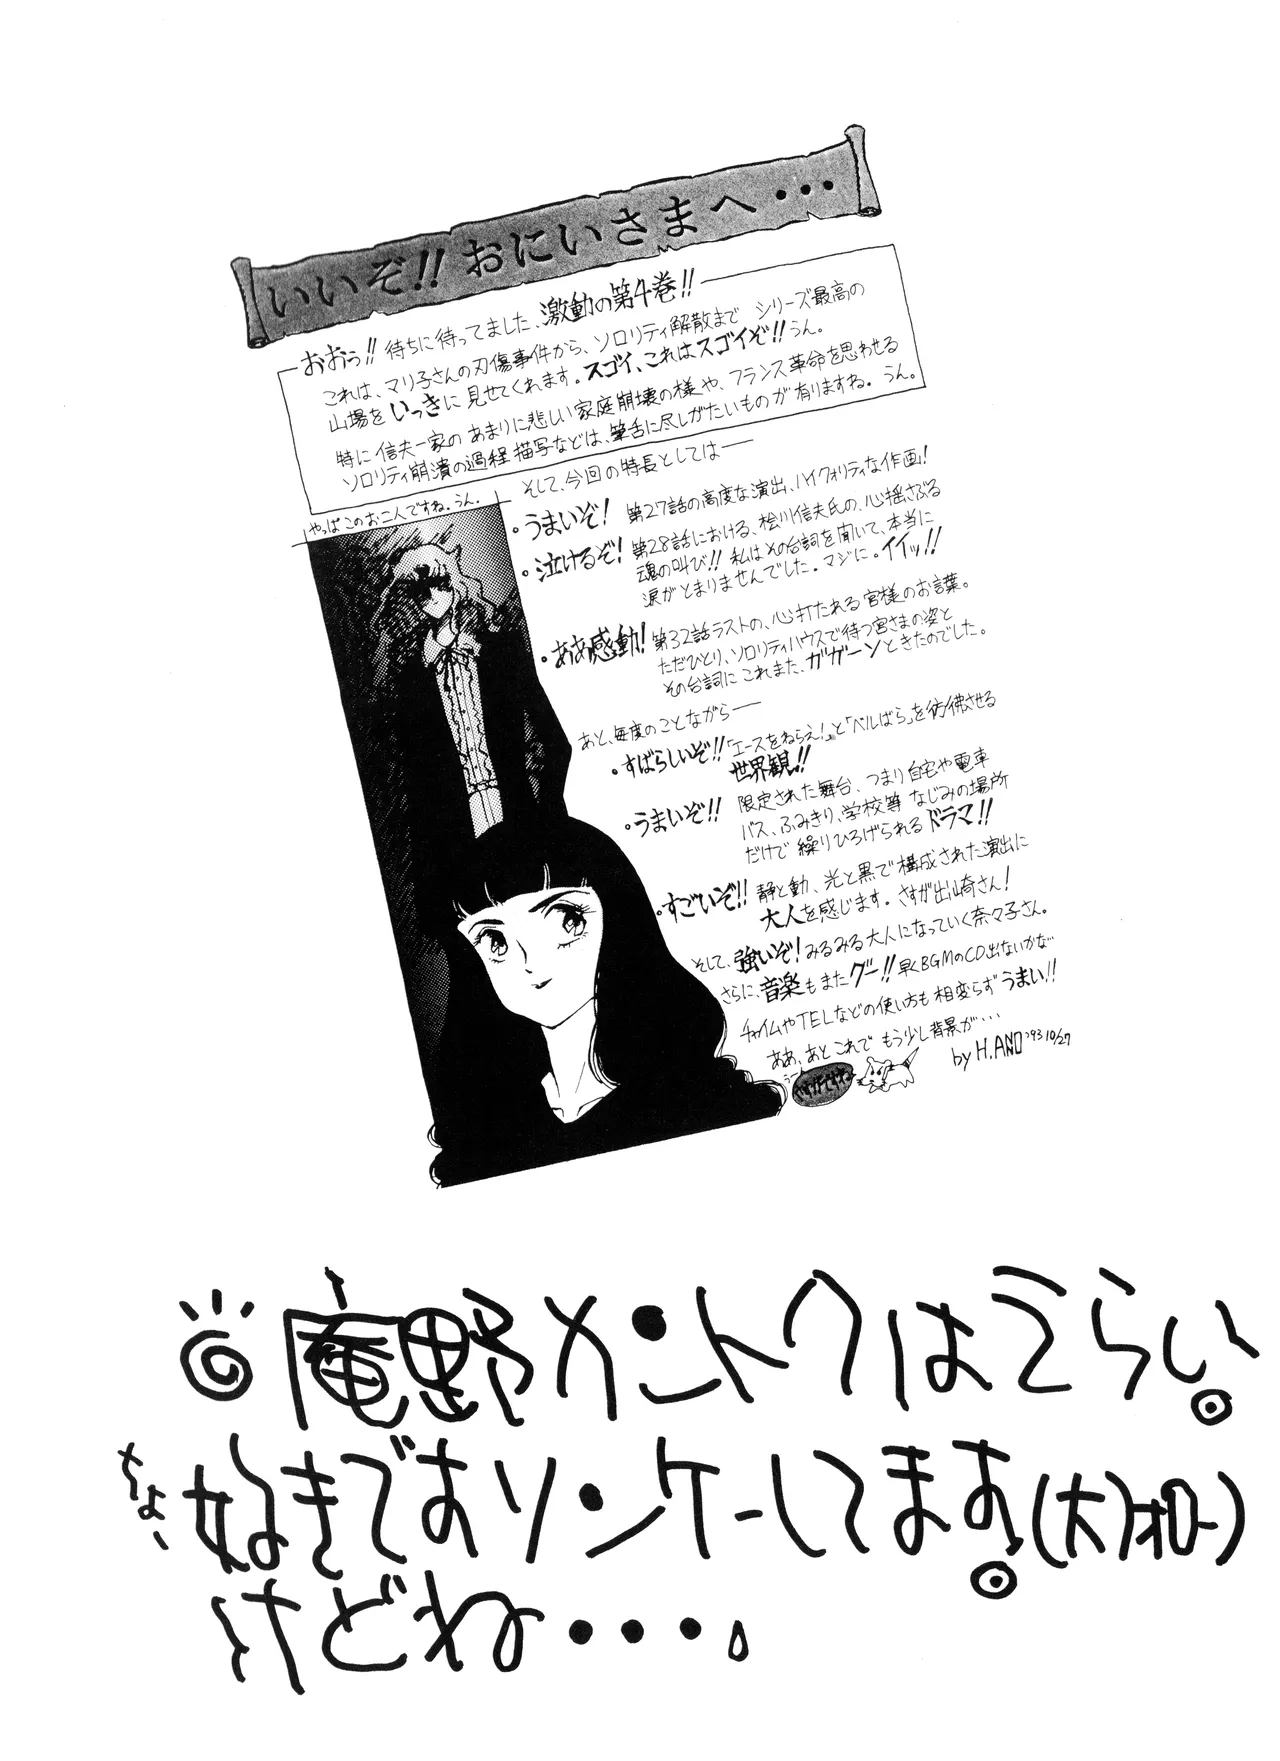 いいぞ!! おにいさまへ・・・
おおっ!! 待ちに待ってました、激動の第4巻!!
これは、マリ子さんの刃傷事件から、ソロリティ解散まで シリーズ最高の
山場を いっきに 見せてくれます。スゴイ、これはスゴイぞ!! うん。
特に 信夫一家の あまりに悲しい 家庭崩壊の様や、フランス革命を思わせる
ソロリティ崩潰の過程描写などは、筆舌に尽しがたいものが 有りますね。うん。
やっぱこのお二人ですね。うん。
そして、今回の特長としては──
・うまいぞ! 第27話の高度な演出、ハイクォリティな作画!
・泣けるぞ! 第28話における、桧川信夫氏の、心揺さぶる
魂の叫び!! 私はその台詞を聞いて、本当に
涙がとまりませんでした。マジに。イイッ!!
・ああ感動! 第32話ラストの、心打たれる 宮様のお言葉。
ただひとり、ソロリティハウスで待つ宮さまの姿と
その台詞に これまた、ガガーンときたのでした。
あと、毎度のことながら──
・すばらしいぞ!! 「エースをねらえ!」と「ベルばら」を彷彿させる
世界観!!
・うまいぞ!! 限定された舞台、つまり自宅や電車
バス、ふみきり、学校等 なじみの場所
だけで 繰りひろげられる ドラマ!!
・すごいぞ!! 静と動、光と黒で構成された演出に
大人を感じます。さすが出崎さん!
そして、強いぞ! みるみる大人になっていく奈々子さん。
さらに、音楽もまたグー!! 早くBGMのCD出ないかな
チャイムやTELなどの使い方も 相変らず うまい!!
ああ、あと これで もう少し背景が・・・
by H.ANO '93 10/27
庵野カントクはえらい。
ちょー好きですソンケーしてます。(大)オロー)
けどね・・・。